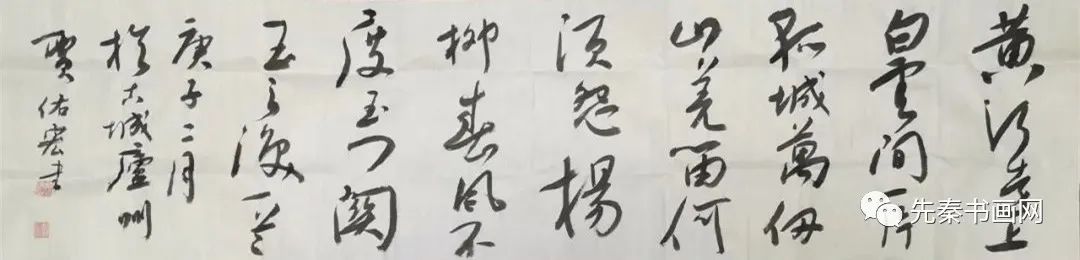 黄河远上
白雲间一片
孤城萬仞
山羌笛何
须怨楊
柳春風不
度玉门関
王之涣一首
庚子二月
於古城廬州
佑宏书
先秦书画网